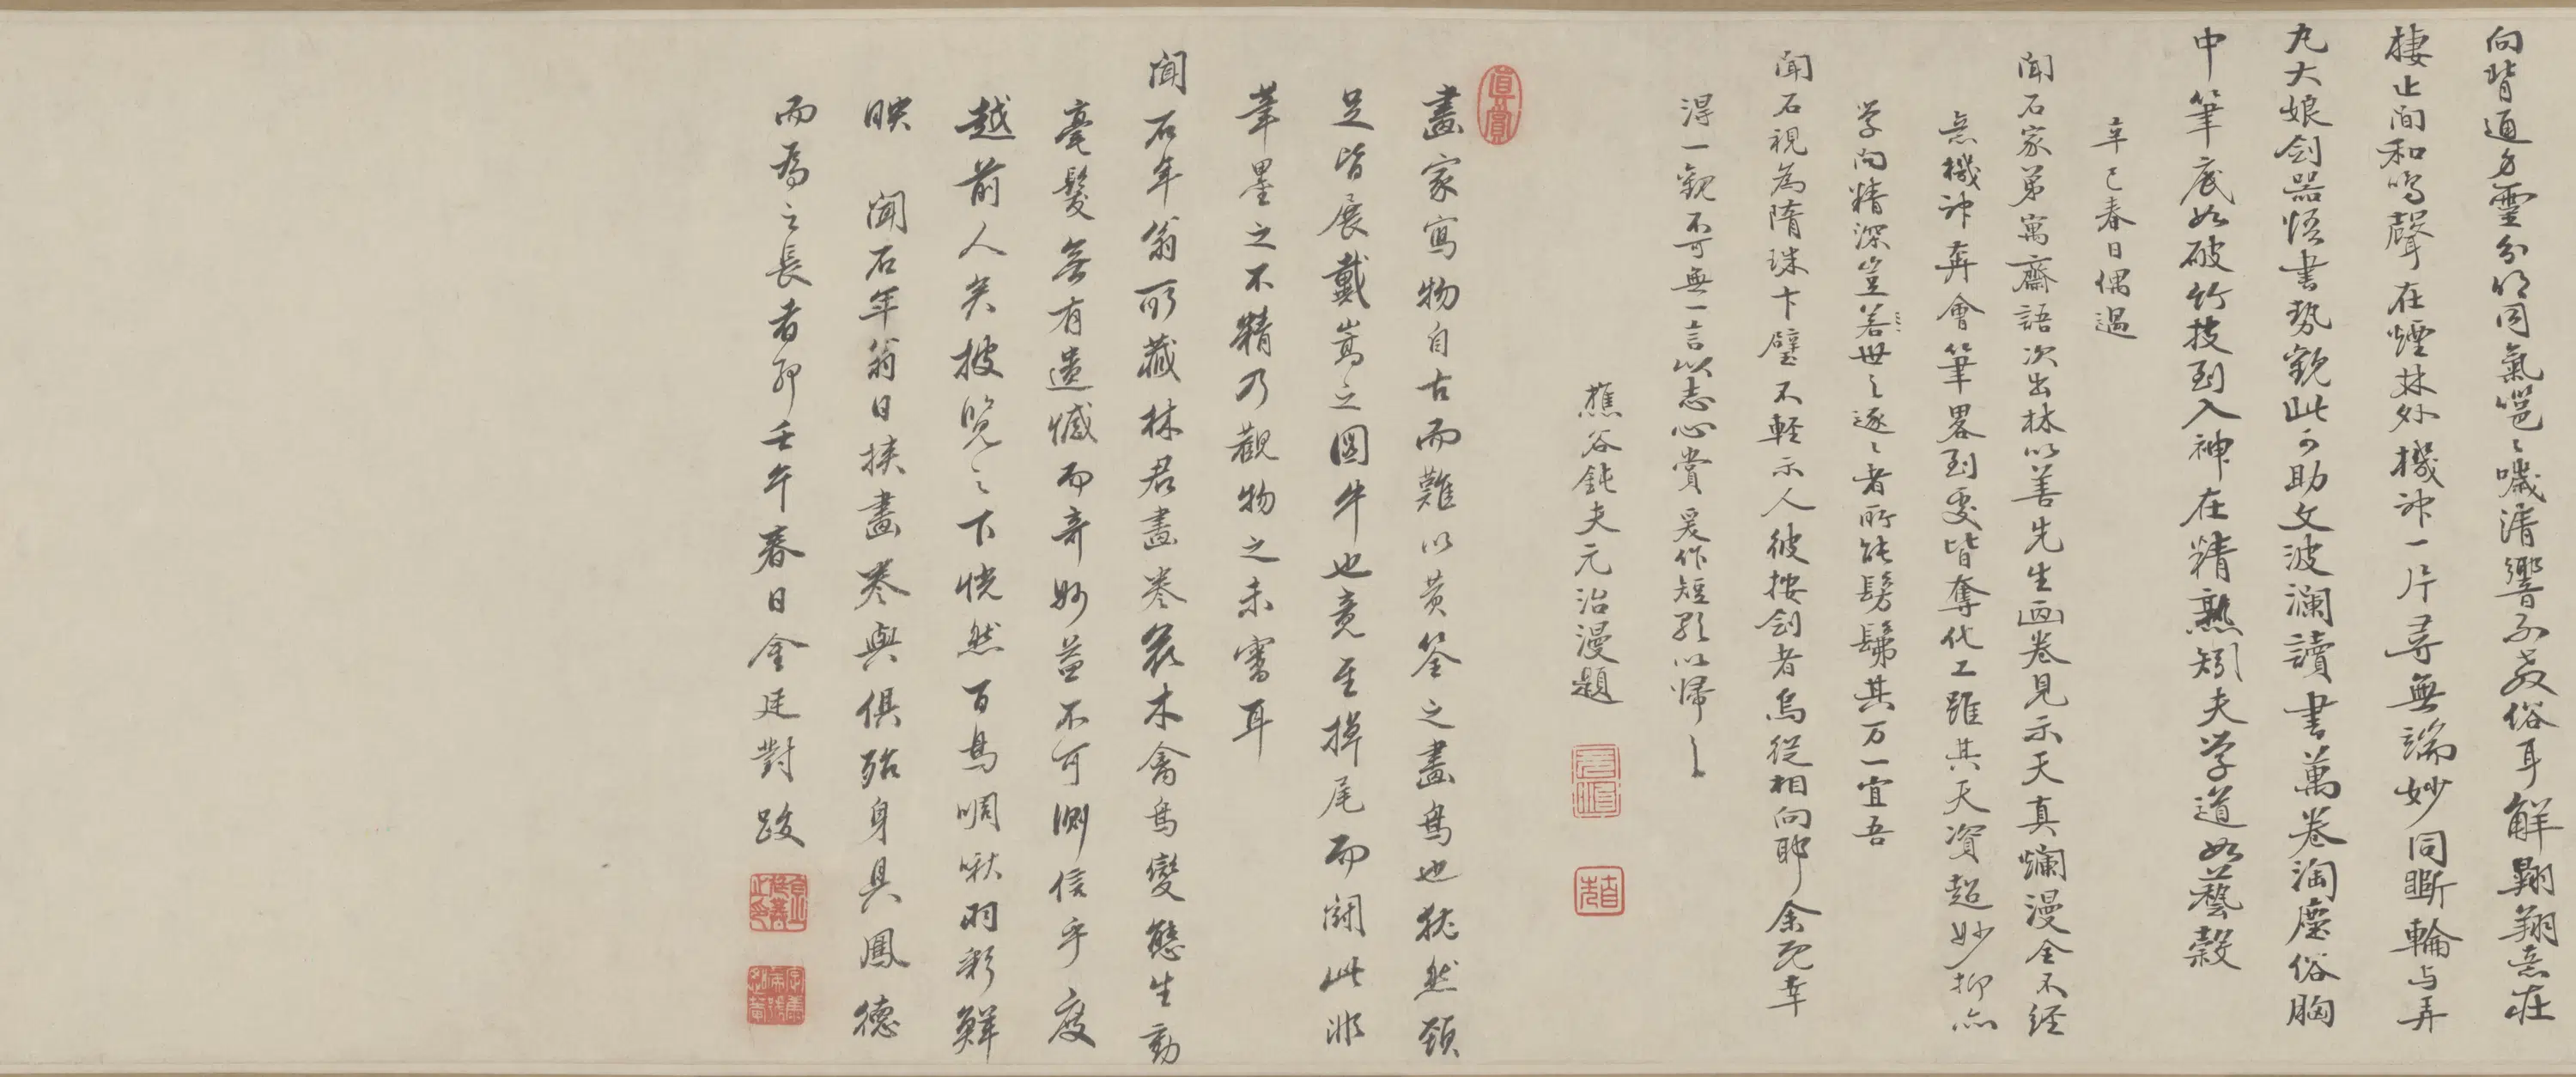 向背通身靈分明同氣邕〻噦清響不教俗耳解翔翔意在
棲止間和鳴聲在煙林外機神一片尋無端妙同斲輪与弄
丸大娘劍器悟書勢觀此可助文波瀾讀書萬卷淘塵俗胸
中筆底如破竹技到入神在精熟矧夫学道如藝穀
辛巳春日偶過
聞石家弟寓齋語次出林以善先生画卷見示天真爛漫全不經
意機神奔會筆畧到處皆奪化工雖其天資超妙抑亦
学向精深豈若世之逐〻者所能髣髴其万一宜吾
聞石視為隋珠卞璧不輕示人彼按劍者烏從相向耶余既幸
得一觀不可無一言以志心賞爰作短歌以歸之
樵谷鈍夫元治漫題
真賞
畫家寫物自古而難以黃筌之畫鳥也猶然頸
足皆展戴嵩之圖牛也竟至掉尾而鬪此非
筆墨之不精乃觀物之未審耳
聞石年翁所藏林君畫卷裒木禽鳥變態生動
毫髮無有遺憾而奇妙益不可測信乎度
越前人矣披覽之下恍然百鳥啁啾羽彩鮮
映 聞石年翁日挾畫卷與俱殆身具鳳德
而為之長者耶壬午春日金廷對跋